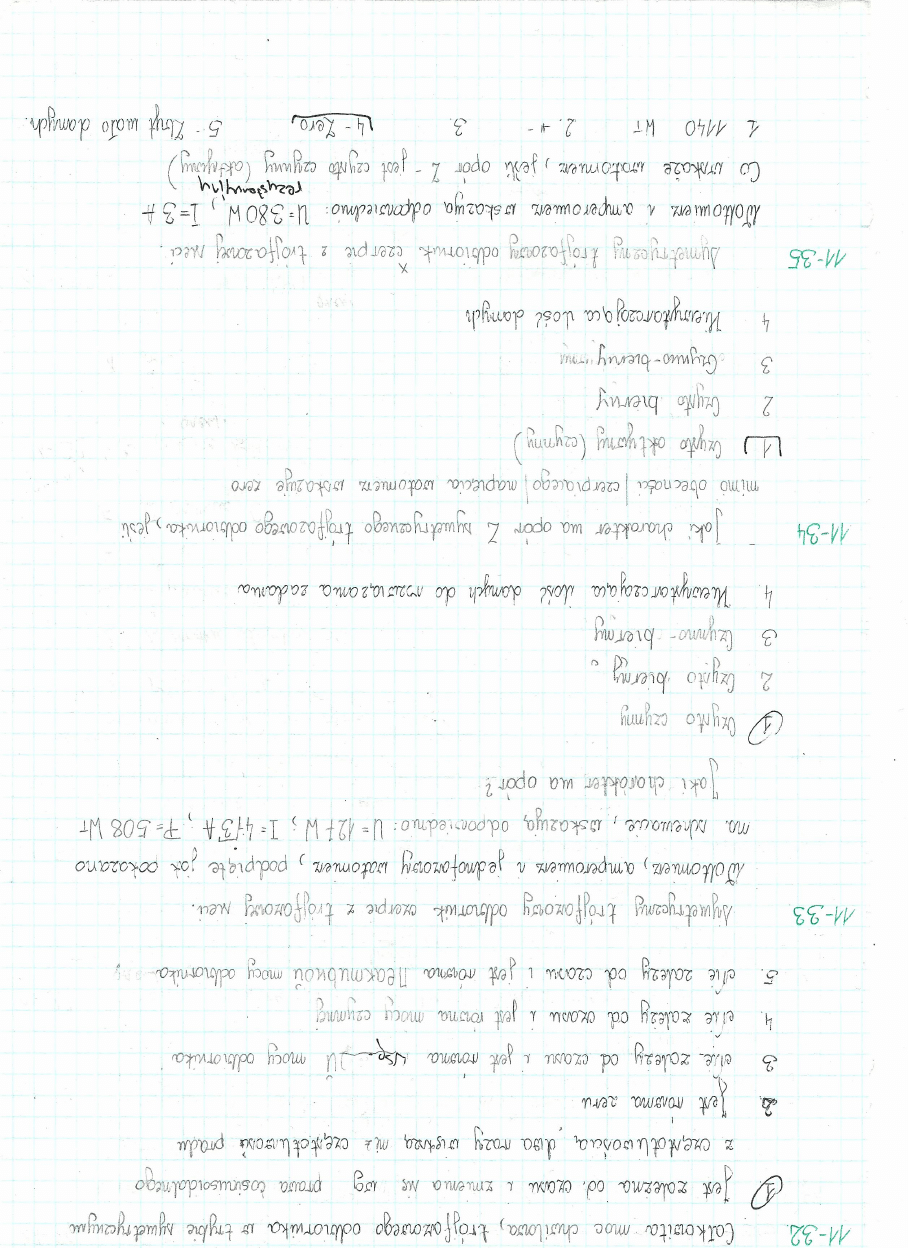 11-32. Całkowita moc chwilowa, trójfazowego odbiornika w trybie symetrycznym
1 jest zależna od. czasu i zmienia się wg prawa cosinusoidalnego
z częstotliwością, dwa razy większą niż częstotliwość prądu
2. Jest równa zeru
3 nie zależy od czasu i jest równa mocy odbiornika
4. nie zależy od czasu i jest równa mocy czynnej
5. nie zależy od czasu i jest równa реактивной mocy odbiornika
11-33 Symetryczny trójfazowy odbiornik czerpie z trójfazowej sieci.
Woltomierz, amperomierz i jednofazowy watomierz, podpięte jak pokazano
na schemacie, wskazują, odpowiednio: U=127 W; I=4√3 A; P=508 WT
Jaki charakter ma opór?
1 Czysto czynny
2 Czysto bierny
3 Czynno-bierny
4. Niewystarczająca ilość danych do rozwiązania zadania
11-34 Jaki charakter ma opór Z symetrycznego trójfazowego odbiornika, jeśli
mimo obecności |czerpiącego| napięcia watomierz wskazuje zero
1 Czysto aktywny (czynny)
2 Czysto bierny
3 Czynno-bierny
4 Niewystarczająca ilość danych
11-35 Symetryczny trójfazowy odbiornik czerpie z trójfazowej sieci.
Woltomierz i amperomierz wskazują odpowiednio: U=380 W, I=3 A
Co wskaże watomierz, jeśli opór Z - jest czysto czynny (aktywny)
rezystancyjny
1 1140 WT 2. 3. 4 - Zero 5- Zbyt mało danych.